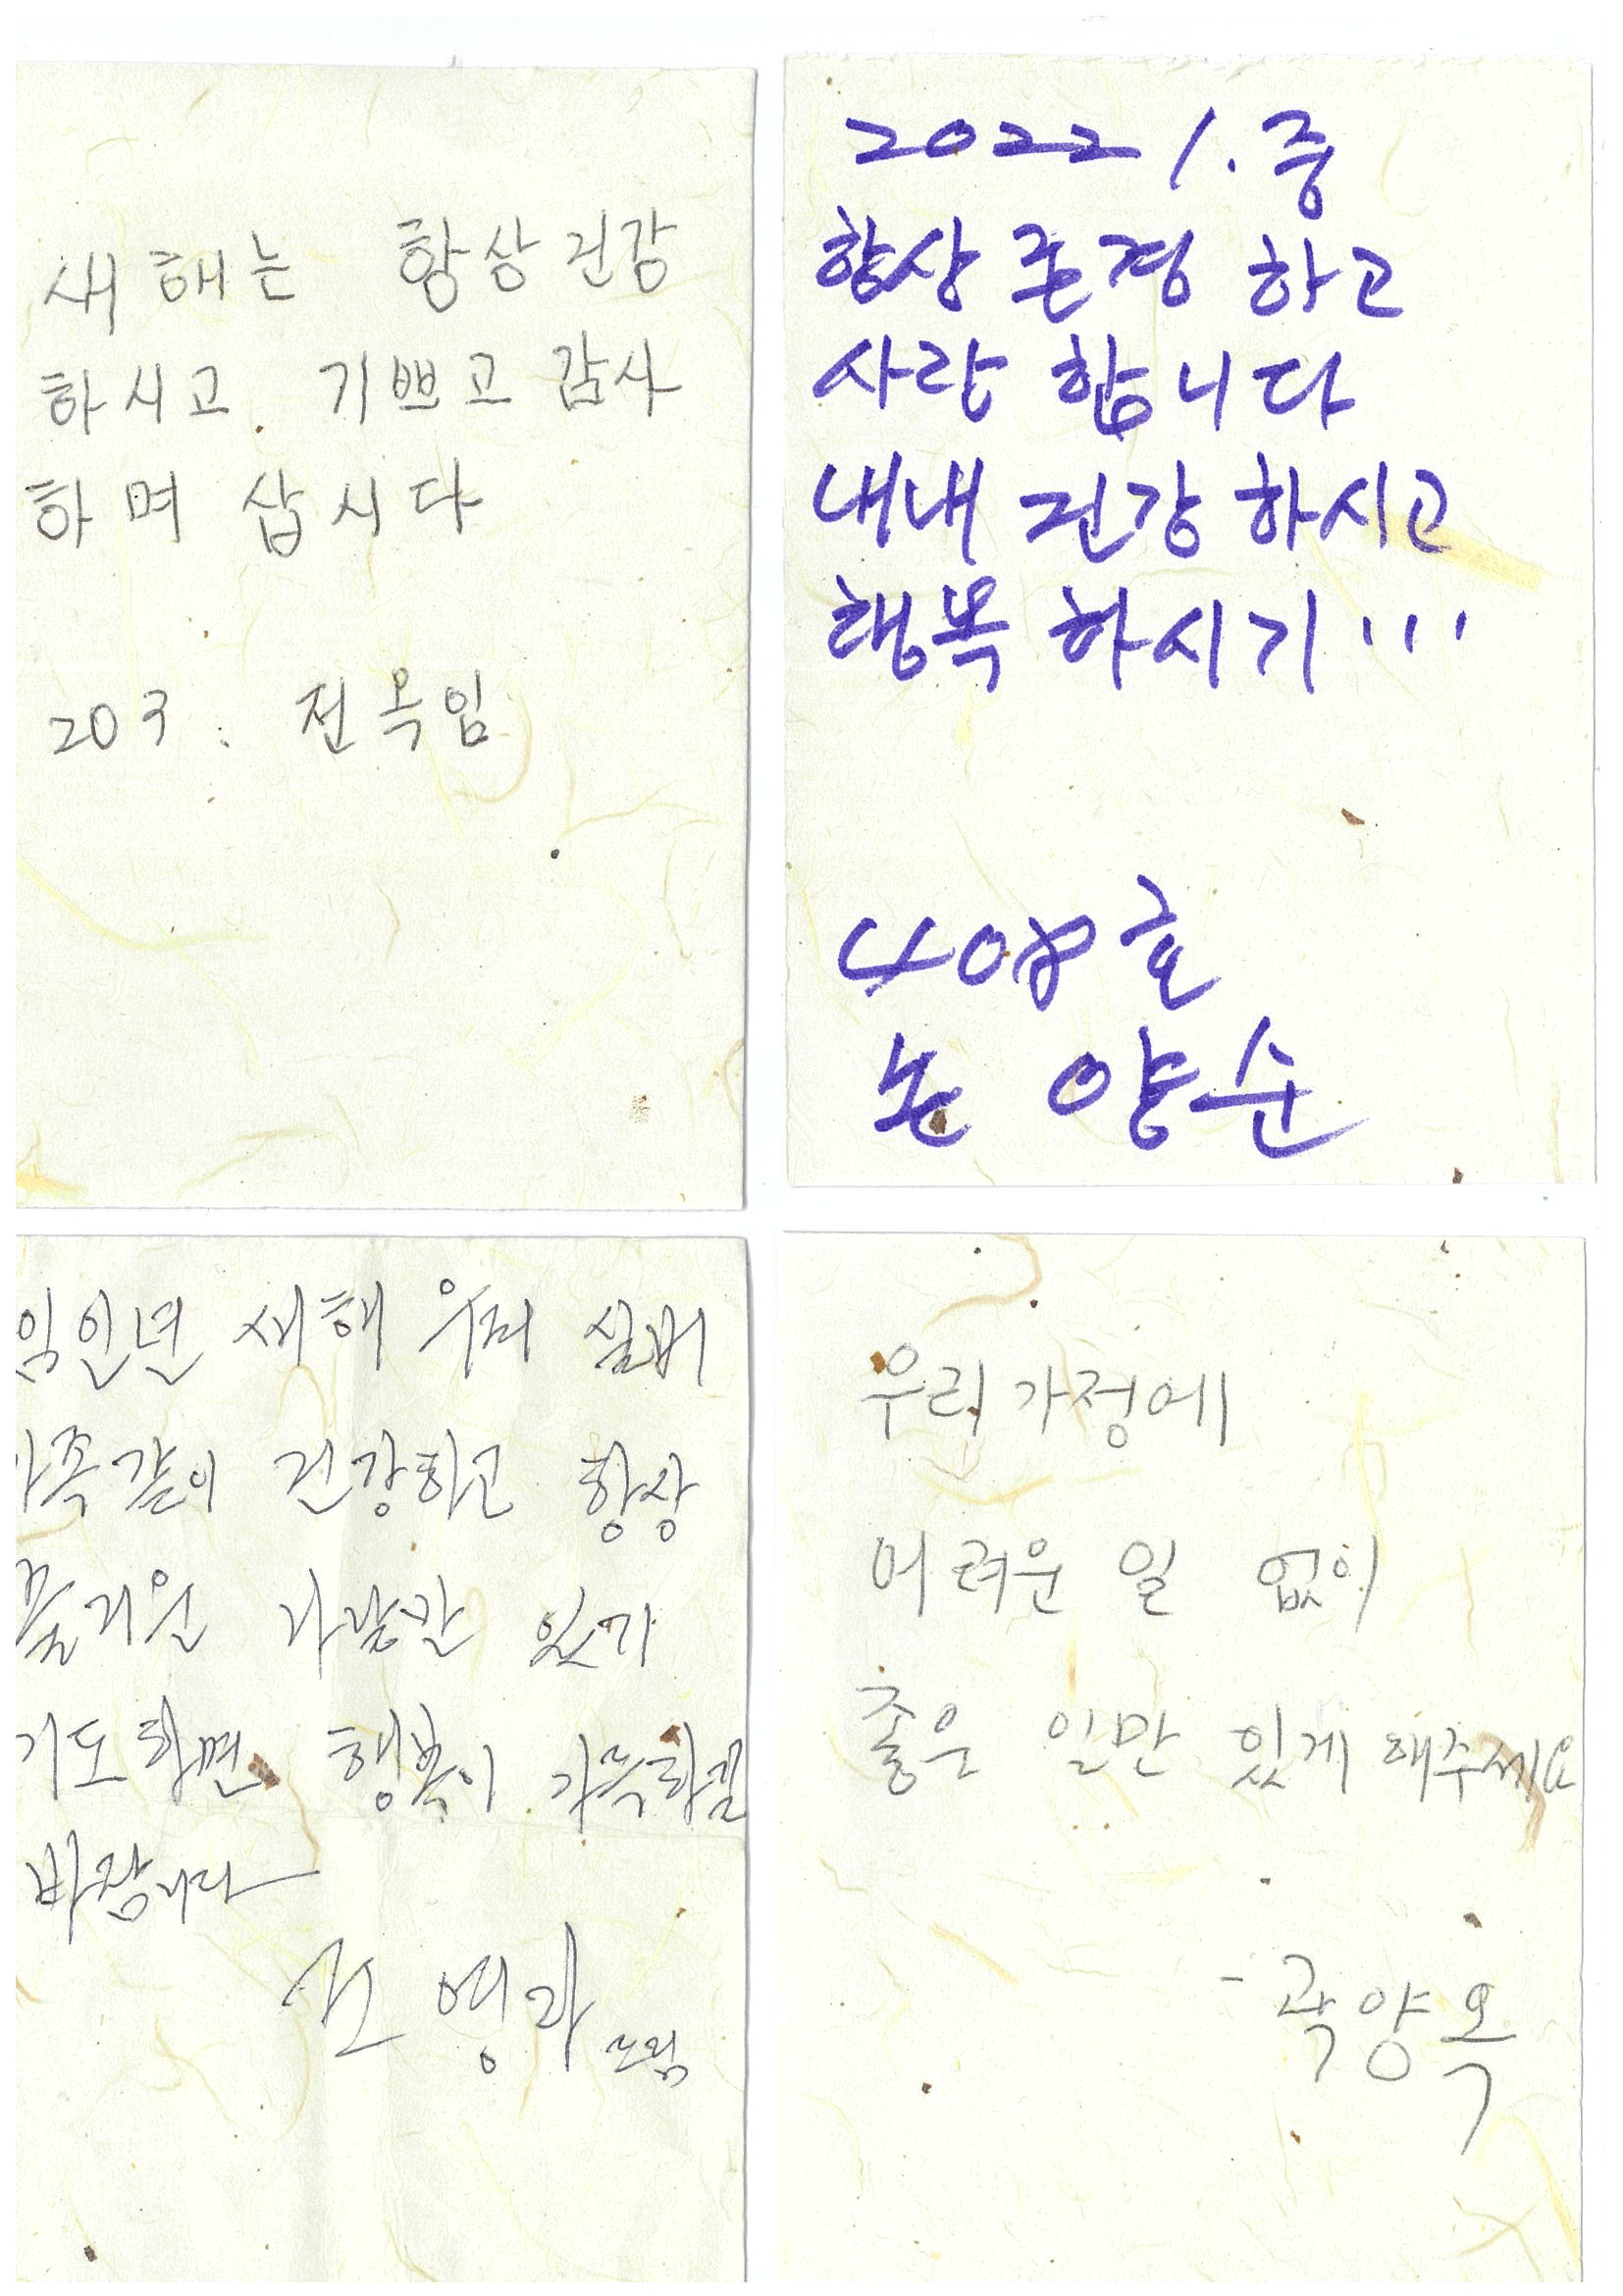 새해는 항상 건강
하시고 기쁘고 감사
하며 삽시다
203. 전옥임
2022 1. 중
항상 존경 하고
사랑 합니다
내내 건강 하시고
행복 하시기...
408호
손 양순
임인년 새해 우리 실버
가족같이 건강하고 항상
즐거운 나날만 있기
기도하면 행복이 가득하길
바랍니다
드림
우리가정에
어려운 일 없이
좋은 일만 있게 해주세요
- 곽양옥